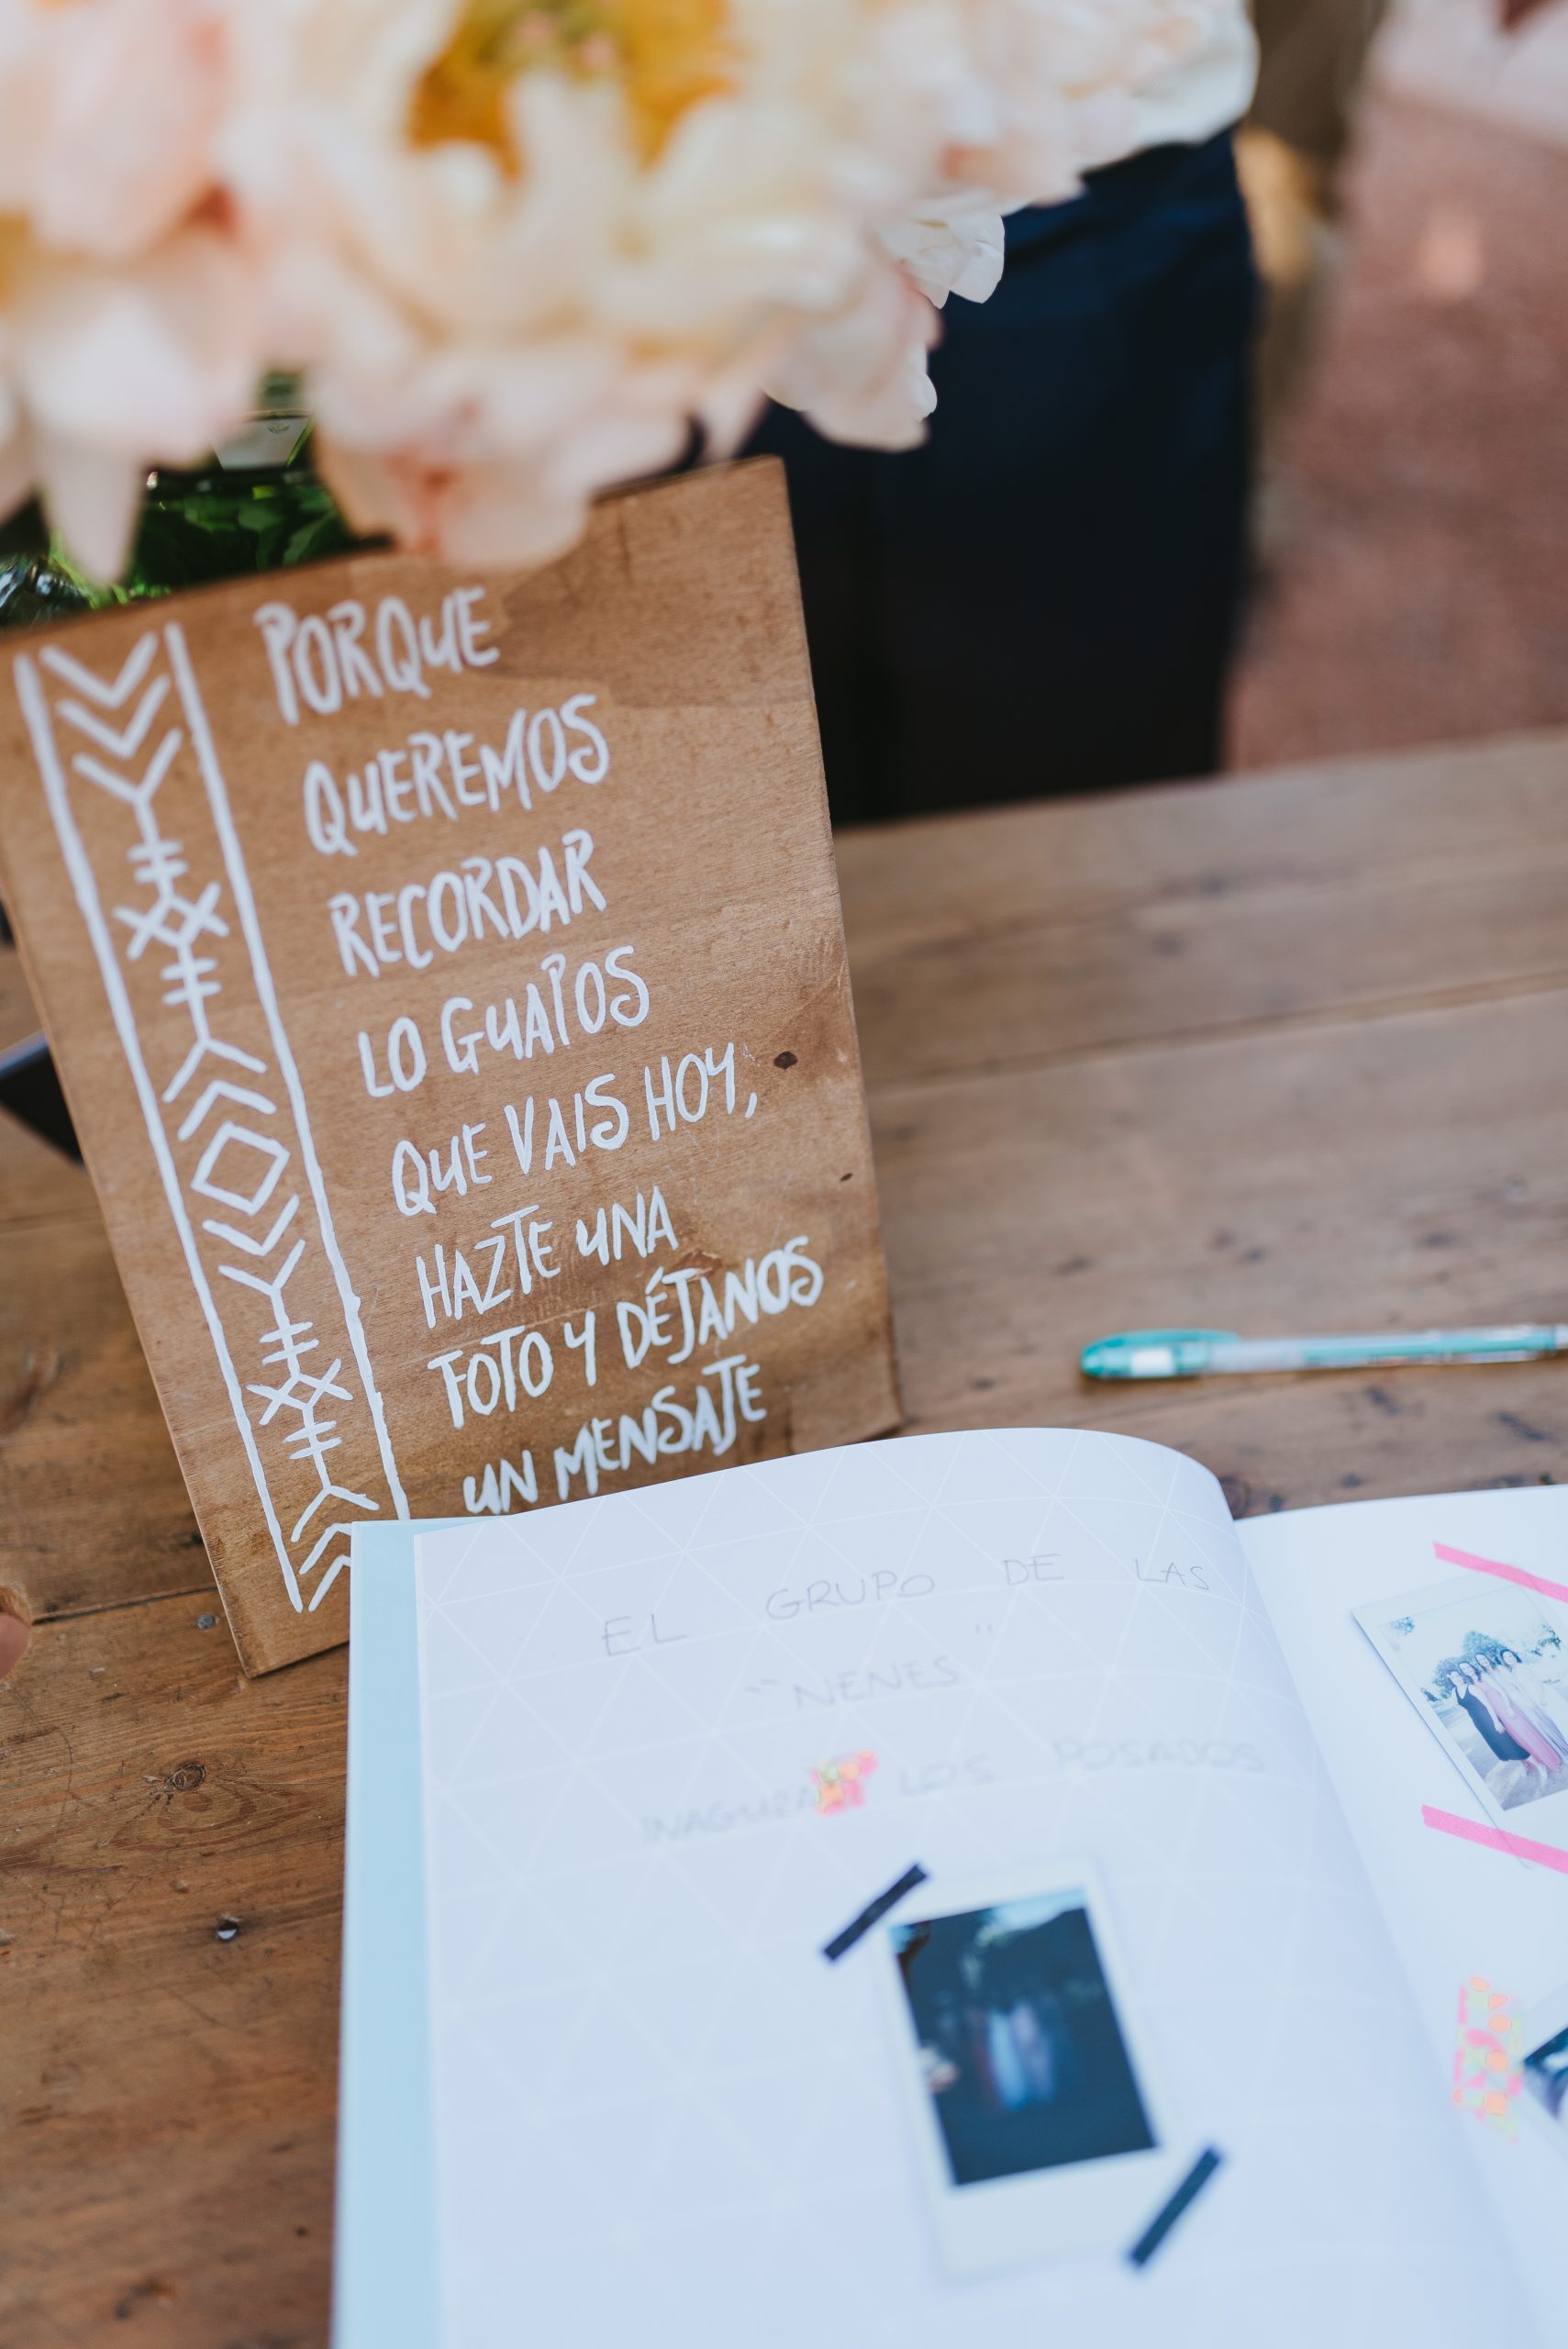 PORQUE
QUEREMOS
RECORDAR
LO GUAPOS
QUE VAIS HOY,
HAZTE UNA
FOTO Y DÉJANOS
UN MENSAJE
EL GRUPO DE LAS
"NENES"
LOS POSADOS